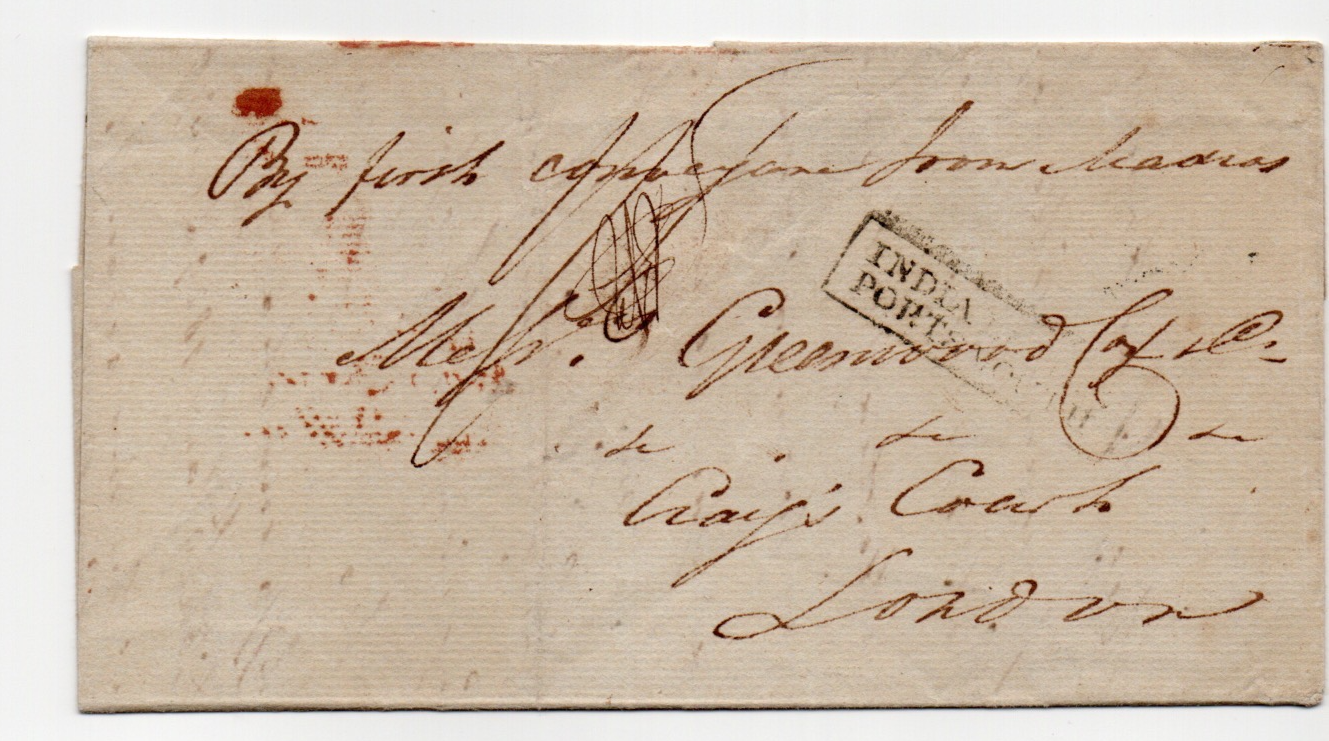 By first conveyance from Madras
INDIA
PORTSMOUTH
Messrs. Greenwood Cox & Co.
Craig's Court
London